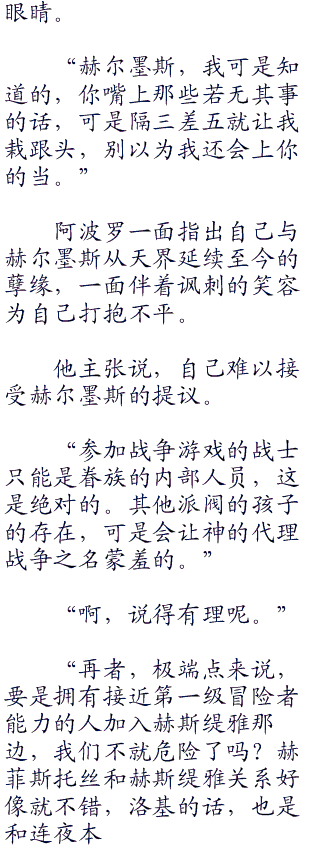 眼睛。
“赫尔墨斯，我可是知
道的，你嘴上那些若无其事
的话，可是隔三差五就让我
栽跟头，别以为我还会上你
的当。”
阿波罗一面指出自己与
赫尔墨斯从天界延续至今的
孽缘，一面伴着讽刺的笑容
为自己打抱不平。
他主张说，自己难以接
受赫尔墨斯的提议。
“参加战争游戏的战士
只能是眷族的内部人员，这
是绝对的。其他派阀的孩子
的存在，可是会让神的代理
战争之名蒙羞的。”
“啊，说得有理呢。”
“再者，极端点来说，
要是拥有接近第一级冒险者
能力的人加入赫斯缇雅那
边，我们不就危险了吗？赫
菲斯托丝和赫斯缇雅关系好
像就不错，洛基的话，也是
和连夜本